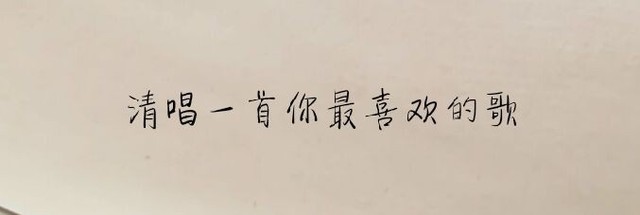 清唱一首你最喜欢的歌